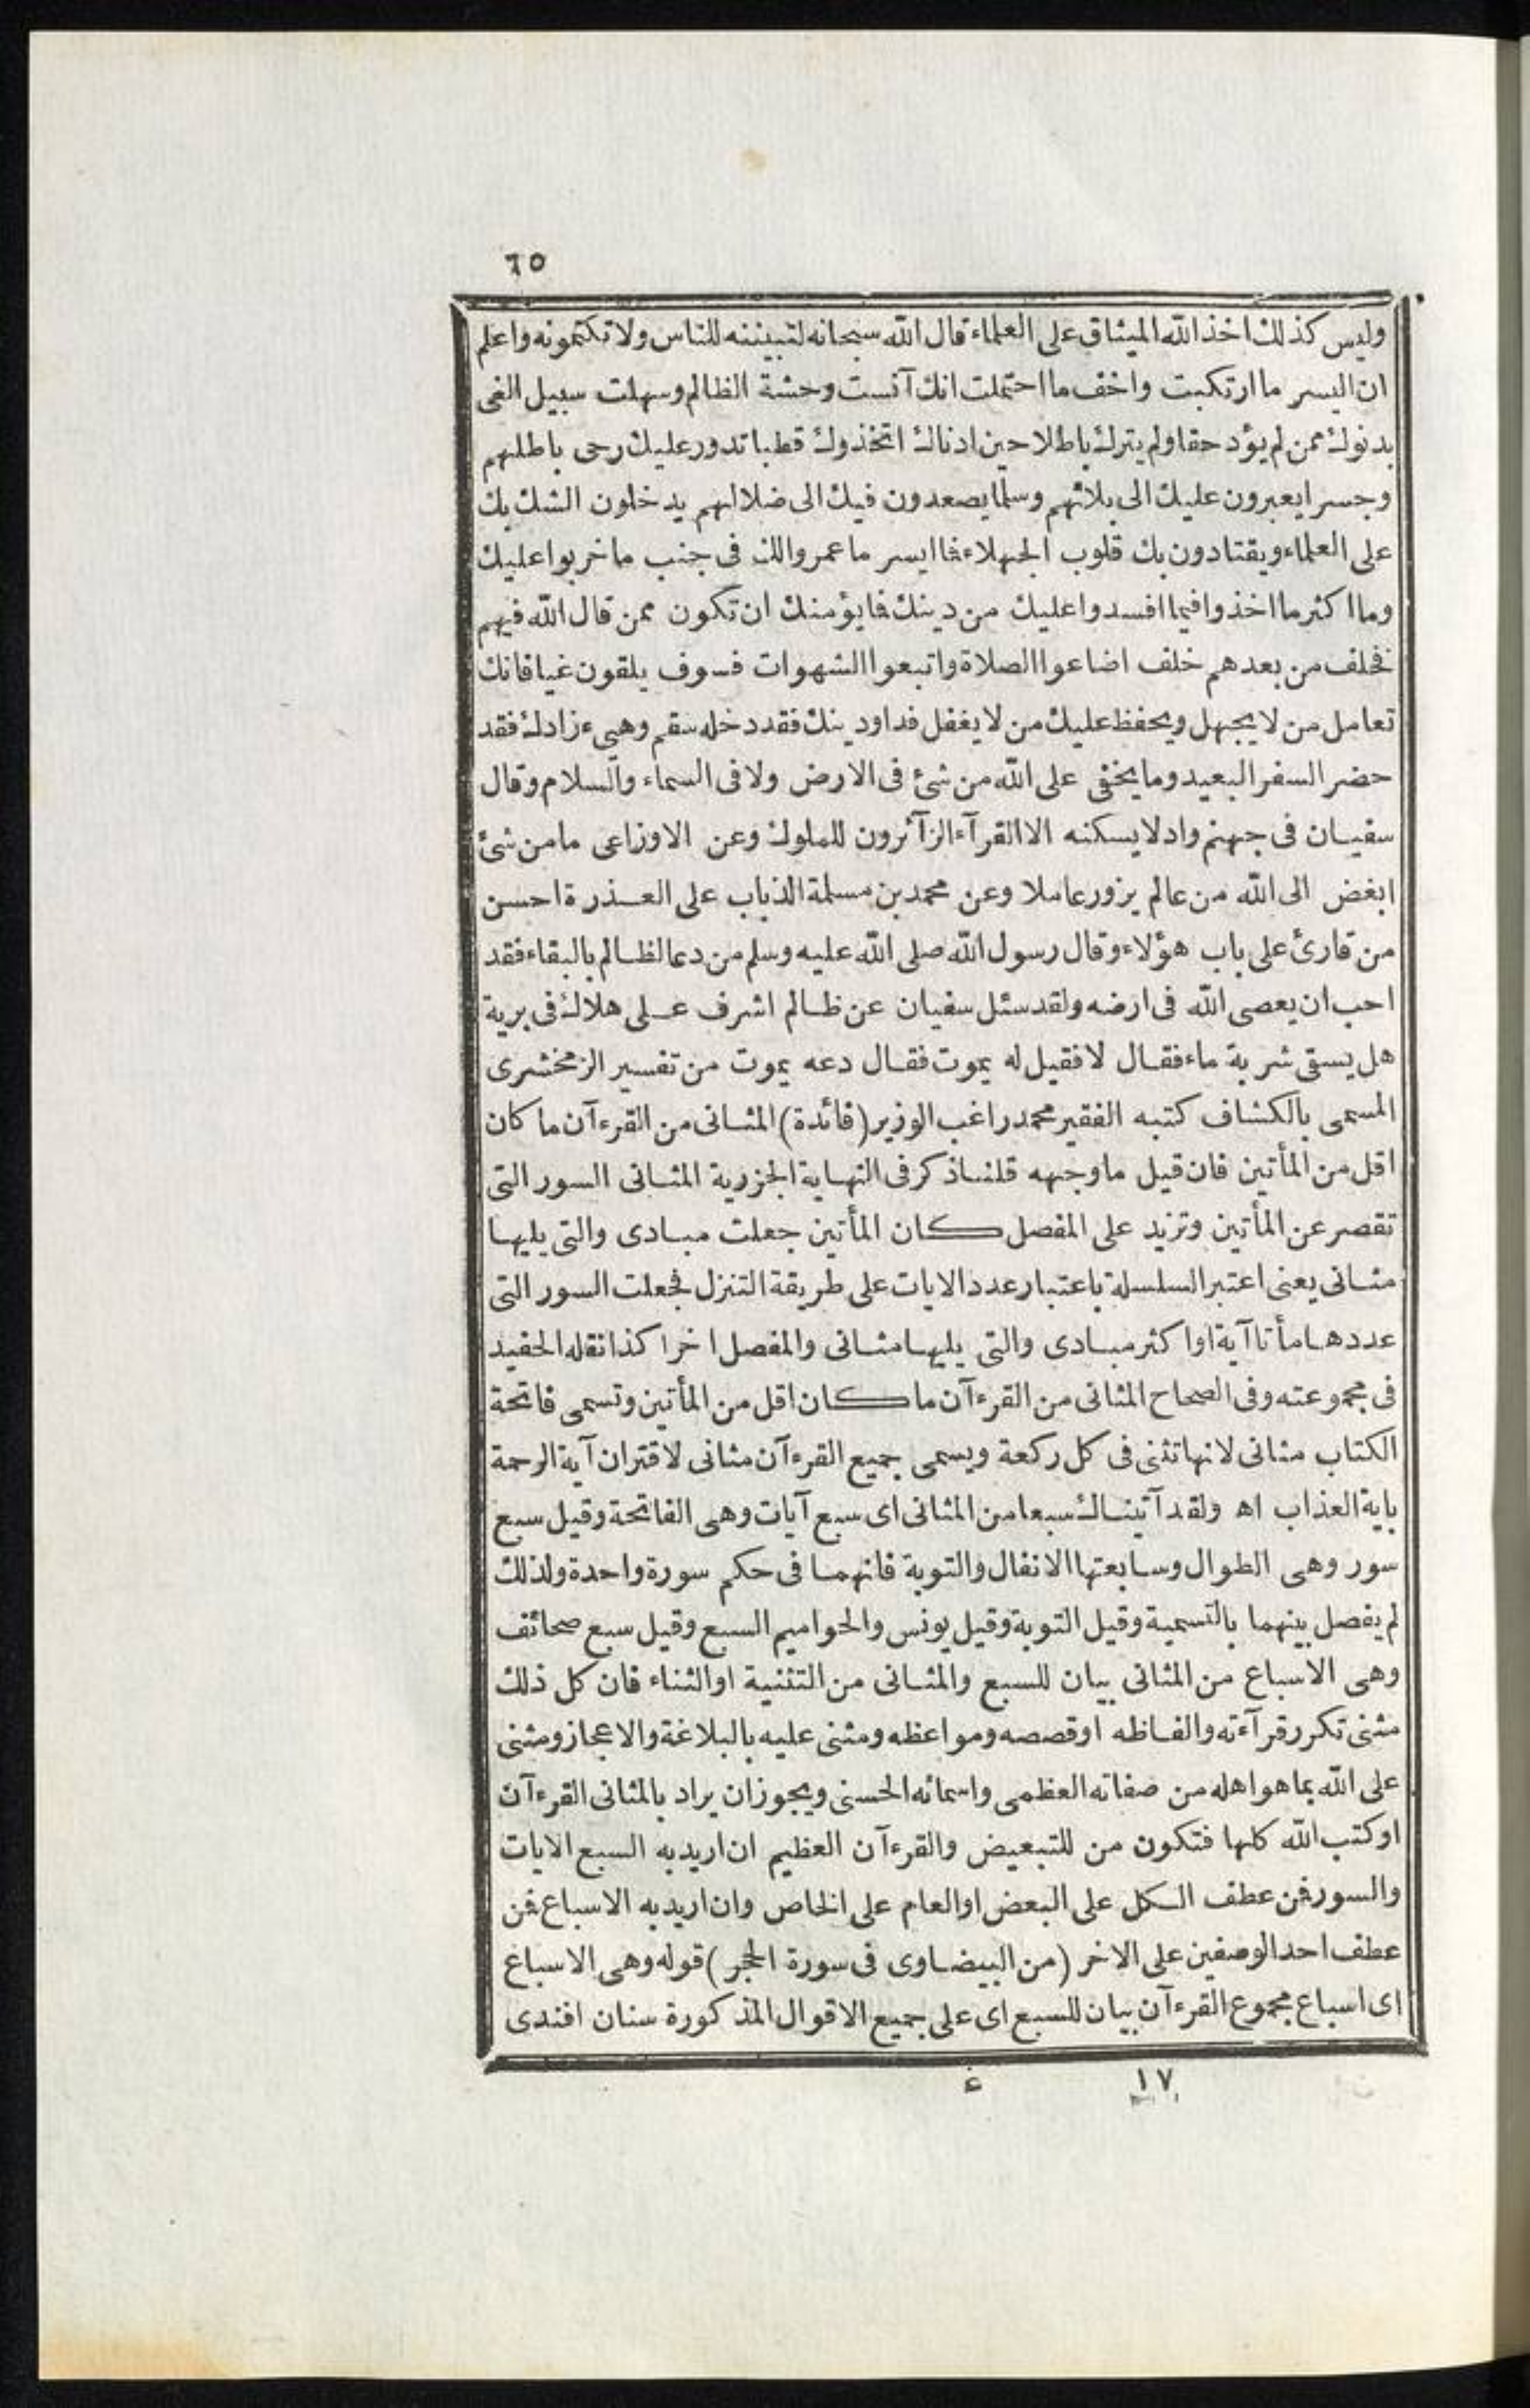 ٦٥
وليس كذلك اخذ الله الميثاق على العلماء قال الله سبحانه لتبيننه للناس ولا تكتمونه واعلم
ان اليسر ما ارتكبت واخف ما احتملت انك آنست وحشة الظالم وسهلت سبيل الغى
بدنوك ممن لم يؤد حقا ولم يترك باطلا حين ادناك اتخذوك قطبا تدور عليك رحى باطلهم
وجسرا يعبرون عليك الى بلائهم وسلما يصعدون فيك الى ضلالهم يدخلون الشك بك
على العلماء ويقتادون بك قلوب الجهلاء فما ايسر ما عمروا لك فى جنب ما خربوا عليك
وما اكثر ما اخذوا فيما افسدوا عليك من دينك فما يؤمنك ان تكون ممن قال الله فيهم
فخلف من بعدهم خلف اضاعوا الصلاة واتبعوا الشهوات فسوف يلقون غيا فانك
تعامل من لا يجهل ويحفظ عليك من لا يغفل فداو دينك فقد دخله سقم وهيئ زادك فقد
حضر السفر البعيد وما يخفى على الله من شئ فى الارض ولا فى السماء والسلام وقال
سفيان فى جهنم واد لا يسكنه الا القرآء الزآئرون للملوك وعن الاوزاعى ما من شئ
ابغض الى الله من عالم يزور عاملا وعن محمد بن مسلمة الذباب على العذرة احسن
من قارئ على باب هؤلاء وقال رسول الله صلى الله عليه وسلم من دعا لظالم بالبقاء فقد
احب ان يعصى الله فى ارضه ولقد سئل سفيان عن ظالم اشرف على هلاك فى برية
هل يسقى شربة ماء فقال لا فقيل له يموت فقال دعه يموت من تفسير الزمخشرى
المسمى بالكشاف كتبه الفقير محمد راغب الوزير (فائدة) المثانى من القرءآن ما كان
اقل من المأتين فان قيل ما وجهه قلنا ذكر فى النهاية الجزرية المثانى السور التى
تقصر عن المأتين وتزيد على المفصل كان المأتين جعلت مبادى والتى يليها
مثانى يعنى اعتبر السلسلة باعتبار عدد الايات على طريقة التنزل فجعلت السور التى
عددها مأتا آية او اكثر مبادى والتى يليها مثانى والمفصل اخرا كذا نقله الحفيد
فى مجموعته وفى الصحاح المثانى من القرءآن ما كان اقل من المأتين وتسمى فاتحة
الكتاب مثانى لانها تثنى فى كل ركعة ويسمى جميع القرءآن مثانى لاقتران آية الرحمة
باية العذاب اه ولقد آتيناك سبعا من المثانى اى سبع آيات وهى الفاتحة وقيل سبع
سور وهى الطوال وسابعتها الانفال والتوبة فانهما فى حكم سورة واحدة ولذلك
لم يفصل بينهما بالتسمية وقيل التوبة وقيل يونس والحواميم السبع وقيل سبع صحائف
وهى الاسباع من المثانى بيان للسبع والمثانى من التثنية او الثناء فان كل ذلك
مثنى تكرر قرآءته والفاظه او قصصه ومواعظه ومثنى عليه بالبلاغة والاعجاز ومثنى
على الله بما هو اهله من صفاته العظمى واسمائه الحسنى ويجوز ان يراد بالمثانى القرءآن
او كتب الله كلها فتكون من للتبعيض والقرءآن العظيم ان اريد به السبع الايات
والسور فمن عطف الكل على البعض او العام على الخاص وان اريد به الاسباع فمن
عطف احد الوصفين على الاخر (من البيضاوى فى سورة الحجر) قوله وهى الاسباع
اى اسباع مجموع القرءآن بيان للسبع اى على جميع الاقوال المذكورة سنان افندى
١٧ ء